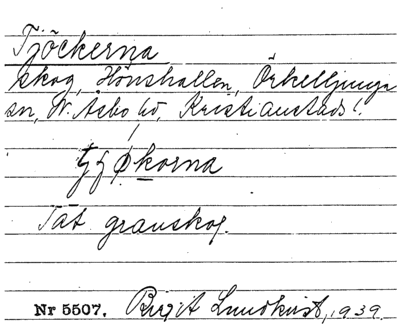 Tjöckerna
skog, Hönshallen, Örkelljunga
sn, N. Åsbo hd, Kristianstads l.
korna
Tät granskog.
Nr 5507. Birgit Lundkvist, 1939.